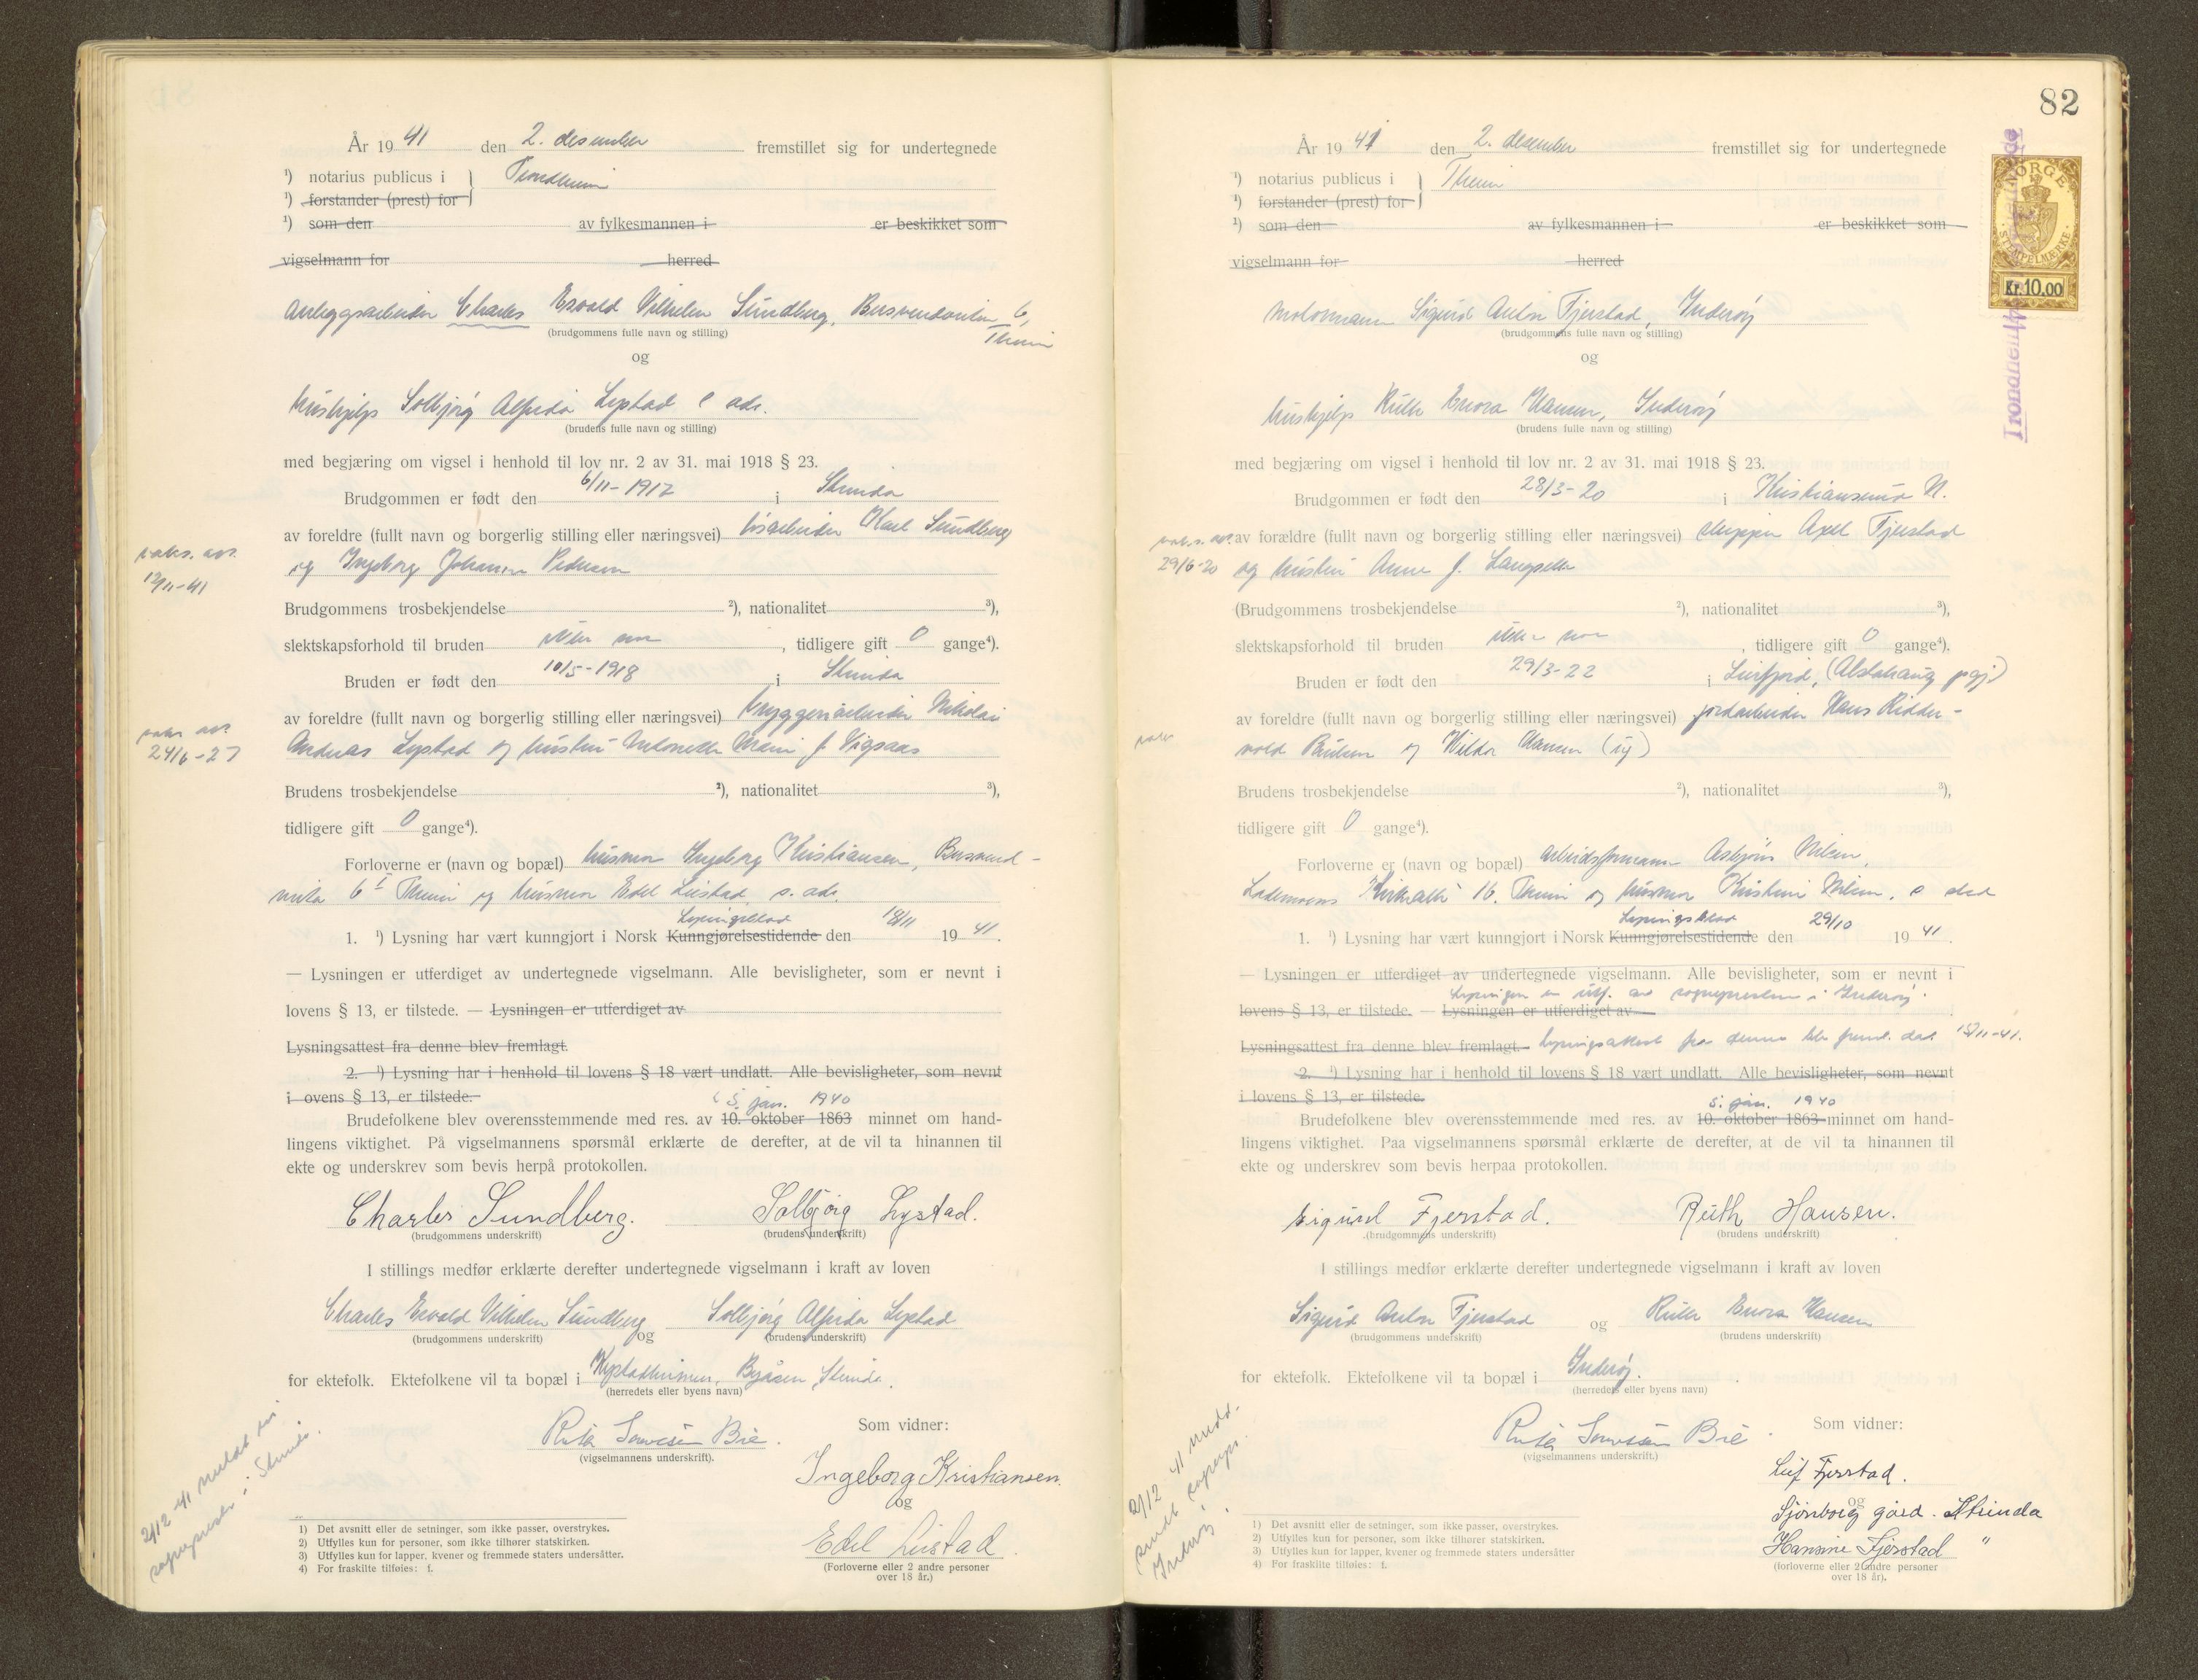 År 19 41 den 2. desember fremstillet sig for undertegnede
¹) notarius publicus i } Trondheim
¹) forstander (prest) for
¹) som den av fylkesmannen i er beskikket som
vigselmann for herred
Anleggsarbeider Charles Evald Vilhelm Sundberg, 6,
Theim
(brudgommens fulle navn og stilling)
og
hushjelp Solbjørg Alfrida Lystad s adr.
(brudens fulle navn og stilling)
med begjæring om vigsel i henhold til lov nr. 2 av 31. mai 1918 § 23.
Brudgommen er født den 6/11-1917 i Strinda
av foreldre (fullt navn og borgerlig stilling eller næringsvei) løsarbeider Karl Sundberg
og Ingeborg Johanne Pedersen
vaks. att.
12/11-41
Brudgommens trosbekjendelse ²), nationalitet ³),
slektskapsforhold til bruden ikke noe, tidligere gift 0 gange⁴).
Bruden er født den 10/5-1918 i Strinda
av foreldre (fullt navn og borgerlig stilling eller næringsvei) bryggeriarbeider Nikolai
Andreas Lystad og hustru Antonette Marie f. Vigsaas
vaks. att.
24/6-27
Brudens trosbekjendelse ²), nationalitet ³),
tidligere gift 0 gange⁴).
Forloverne er (navn og bopæl) husmor Ingeborg Kristiansen,
6 I Theim og husmor Edel Liestad, s. adr.
Lysingsblad 18/11
1. ¹) Lysning har vært kunngjort i Norsk Kunngjørelsestidende den 19 41.
— Lysningen er utferdiget av undertegnede vigselmann. Alle bevisligheter, som er nevnt i
lovens § 13, er tilstede. — Lysningen er utferdiget av
Lysningsattest fra denne blev fremlagt.
2. ¹) Lysning har i henhold til lovens § 18 vært undlatt. Alle bevisligheter, som nevnt
i ovens § 13, er tilstede.
5. jan. 1940
Brudefolkene blev overensstemmende med res. av 10. oktober 1863 minnet om hand-
lingens viktighet. På vigselmannens spørsmål erklærte de derefter, at de vil ta hinannen til
ekte og underskrev som bevis herpå protokollen.
Charles Sundberg. Solbjørg Lystad.
(brudgommens underskrift) (brudens underskrift)
I stillings medfør erklærte derefter undertegnede vigselmann i kraft av loven
Charles Evald Vilhelm Sundberg og Solbjørg Alfrida Lystad
(brudgommens underskrift) (brudens underskrift)
for ektefolk. Ektefolkene vil ta bopæl i Kystadhimmen, Byåsen, Strinda.
(herredets eller byens navn)
Som vidner:
(vigselmannens underskrift).
Ingeborg Kristiansen.
og
Edel Liestad.
(Forloverne eller 2 andre personer
over 18 år.)
2/12-41 meldt til
sogneprester i Strinda.
1) Det avsnitt eller de setninger, som ikke passer, overstrykes.
2) Utfylles kun for personer, som ikke tilhører statskirken.
3) Utfylles kun for lapper, kvener og fremmede staters undersåtter.
4) For fraskilte tilføies: f.
82
År 19 41 den 2. desember fremstillet sig for undertegnede
¹) notarius publicus i } Theim
¹) forstander (prest) for
¹) som den av fylkesmannen i er beskikket som
vigselmann for herred
NORGE
STEMPELMÆRKE
Kr. 10.00
motormann Sigurd Anton Fjerstad, Inderøy
(brudgommens fulle navn og stilling)
og
hushjelp Ruth Enora Hansen, Inderøy
(brudens fulle navn og stilling)
med begjæring om vigsel i henhold til lov nr. 2 av 31. mai 1918 § 23.
Brudgommen er født den 28/3-20 i Kristiansund N.
av forældre (fullt navn og borgerlig stilling eller næringsvei) skipper Axel Fjerstad
og hustru Anne f. Langsette
vaks. att.
29/6-20
(Brudgommens trosbekjendelse ²), nationalitet ³),
slektskapsforhold til bruden ikke noe, tidligere gift 0 gange⁴).
Bruden er født den 29/3-22 i Leirfjord, (Alstahaug prgj.)
av foreldre (fullt navn og borgerlig stilling eller næringsvei) jordarbeider Hans Ridder-
vold Paulsen og Hilda Hansen (ug)
vaks
Brudens trosbekjendelse ²), nationalitet ³),
tidligere gift 0 gange⁴).
Forloverne er (navn og bopæl) arbeidsformann Asbjørn Nilsen,
Lademoens Kirkealle 16, Theim og husmor Kristine Nilsen, s sted
Lysingsblad 29/10
1. ¹) Lysning har vært kunngjort i Norsk Kunngjørelsestidende den 19 41.
— Lysningen er utferdiget av undertegnede vigselmann. Alle bevisligheter, som er nevnt i
Lysingen er utf. av sognepresten i Inderøy.
lovens § 13, er tilstede. — Lysningen er utferdiget av
Lysningsattest fra denne blev fremlagt. Lysingsattest fra denne ble freml. dat. 15/11-41.
2. ¹) Lysning har i henhold til lovens § 18 vært undlatt. Alle bevisligheter, som nevnt
i lovens § 13, er tilstede.
5. jan. 1940
Brudefolkene blev overensstemmende med res. av 10. oktober 1863 minnet om hand-
lingens viktighet. Paa vigselmannens spørsmål erklærte de derefter, at de vil ta hinannen til
ekte og underskrev som bevis herpaa protokollen.
Sigurd Fjerstad. Ruth Hansen.
(brudgommens underskrift) (brudens underskrift)
I stillings medfør erklærte derefter undertegnede vigselmann i kraft av loven
Sigurd Anton Fjerstad og Ruth Enora Hansen
(brudgommens underskrift) (brudens underskrift)
for ektefolk. Ektefolkene vil ta bopæl i Inderøy.
(herredets eller byens navn)
Som vidner:
(vigselmannens underskrift.)
Leif Fjerstad.
og
Sjønborg gård. Strinda
Hansine Fjerstad "
(forloverne eller 2 andre personer
over 18 år).
2/12 41 medd.
Inderøy.
1) Det avsnitt eller de setninger, som ikke passer, overstrykes.
2) Utfylles kun for personer, som ikke tilhører statskirken.
3) Utfylles kun for lapper, kvener og fremmede staters undersåtter
4) For fraskilte tilføies: f.